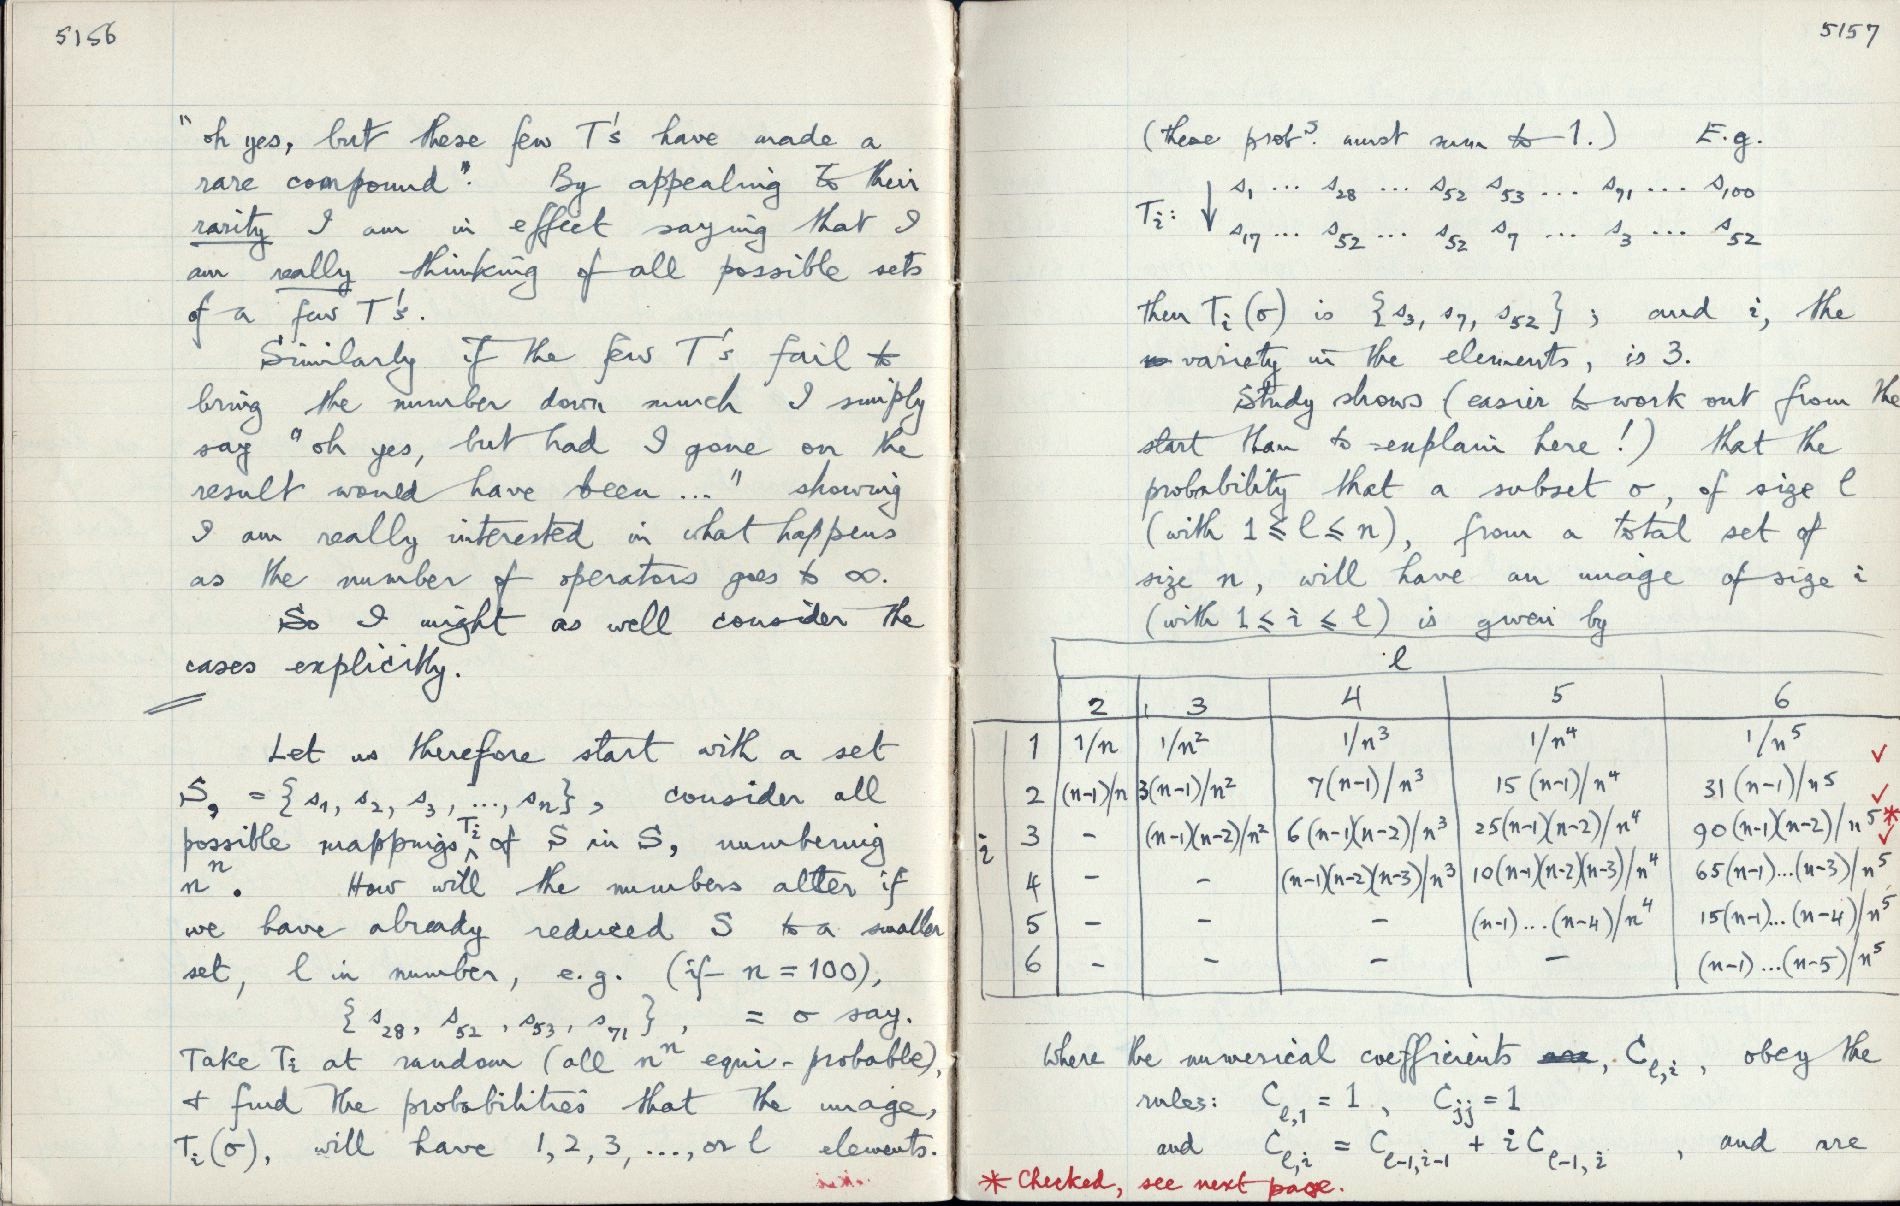 5156
"oh yes, but these few T's have made a
rare compound". By appealing to their
rarity I am in effect saying that I
am really thinking of all possible sets
of a few T's.
Similarly if the few T's fail to
bring the number down much I simply
say "oh yes, but had I gone on the
result would have been ..." showing
I am really interested in what happens
as the number of operators goes to ∞.
So I might as well consider the
cases explicitly.
Let us therefore start with a set
S, = {s₁, s₂, s₃, ..., sₙ}, consider all
possible mappings Tᵢ of S in S, numbering
nⁿ. How will the numbers alter if
we have already reduced S to a smaller
set, l in number, e.g. (if n = 100),
{s₂₈, s₅₂, s₅₃, s₇₁}, = σ say.
Take Tᵢ at random (all nⁿ equi-probable),
+ find the probabilities that the image,
Tᵢ(σ), will have 1, 2, 3, ..., or l elements.
5157
(these probˢ. must sum to 1.) E.g.
s₁ ... s₂₈ ... s₅₂ s₅₃ ... s₇₁ ... s₁₀₀
Tᵢ: ↓
s₁₇ ... s₅₂ ... s₅₂ s₇ ... s₃ ... s₅₂
then Tᵢ(σ) is {s₃, s₇, s₅₂}; and i, the
variety in the elements, is 3.
Study shows (easier to work out from the
start than to explain here!) that the
probability that a subset σ, of size l
(with 1 ≤ l ≤ n), from a total set of
size n, will have an image of size i
(with 1 ≤ i ≤ l) is given by
l
2 3 4 5 6
i
1 1/n 1/n² 1/n³ 1/n⁴ 1/n⁵ ✓
2 (n-1)/n 3(n-1)/n² 7(n-1)/n³ 15(n-1)/n⁴ 31(n-1)/n⁵ ✓
3 - (n-1)(n-2)/n² 6(n-1)(n-2)/n³ 25(n-1)(n-2)/n⁴ 90(n-1)(n-2)/n⁵* ✓
4 - - (n-1)(n-2)(n-3)/n³ 10(n-1)(n-2)(n-3)/n⁴ 65(n-1)...(n-3)/n⁵
5 - - - (n-1)...(n-4)/n⁴ 15(n-1)...(n-4)/n⁵
6 - - - - (n-1)...(n-5)/n⁵
where the numerical coefficients, C_{l,i}, obey the
rules: C_{l,1} = 1, C_{jj} = 1
and C_{l,i} = C_{l-1,i-1} + i C_{l-1,i}, and are
* Checked, see next page.